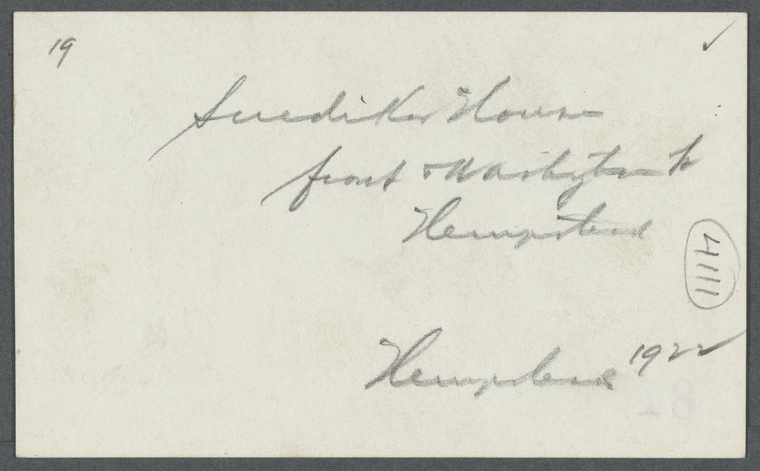 19 ✓
Snediker House
front & Washington St
Hempstead
4111
Hempstead 1922